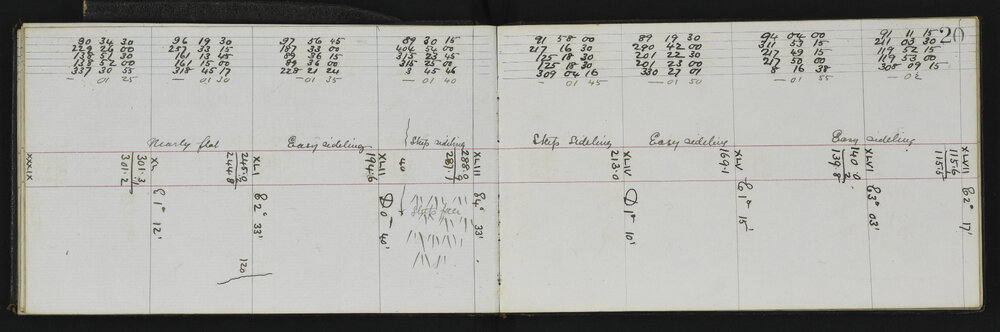 20
80 34 30
229 26 00
138 51 30
138 52 00
337 30 55
— 01 25
96 19 30
257 33 15
161 13 45
161 15 00
318 45 17
— 01 30
97 56 45
187 33 00
89 36 15
89 36 00
228 21 24
— 01 35
89 30 15
404 54 00
315 23 45
315 25 00
3 45 46
— 01 40
91 58 00
217 16 30
125 18 30
125 18 30
309 04 16
— 01 45
89 19 30
290 42 00
201 22 30
201 23 00
330 27 01
— 01 50
94 04 00
311 53 15
217 49 15
217 50 00
8 16 38
— 01 55
91 11 15
211 03 30
119 52 15
119 53 00
308 09 15
— 02
Nearly flat
Easy sideling
Steep sideling
Steep Sideling
Easy sideling
Easy sideling
XXXIX
XL
301.3
301.2
E 1° 12'
XLI
245.0
244.8
E 2° 33'
120
XLII
194.6
D 0° 40'
40
Steep face
XLIII
288.0
287.1
E 4° 33'
XLIV
213.0
D 1° 10'
XLV
169.1
E 1° 15'
XLVI
140.0
139.8
E 3° 03'
XLVII
115.6
115.5
E 2° 17'